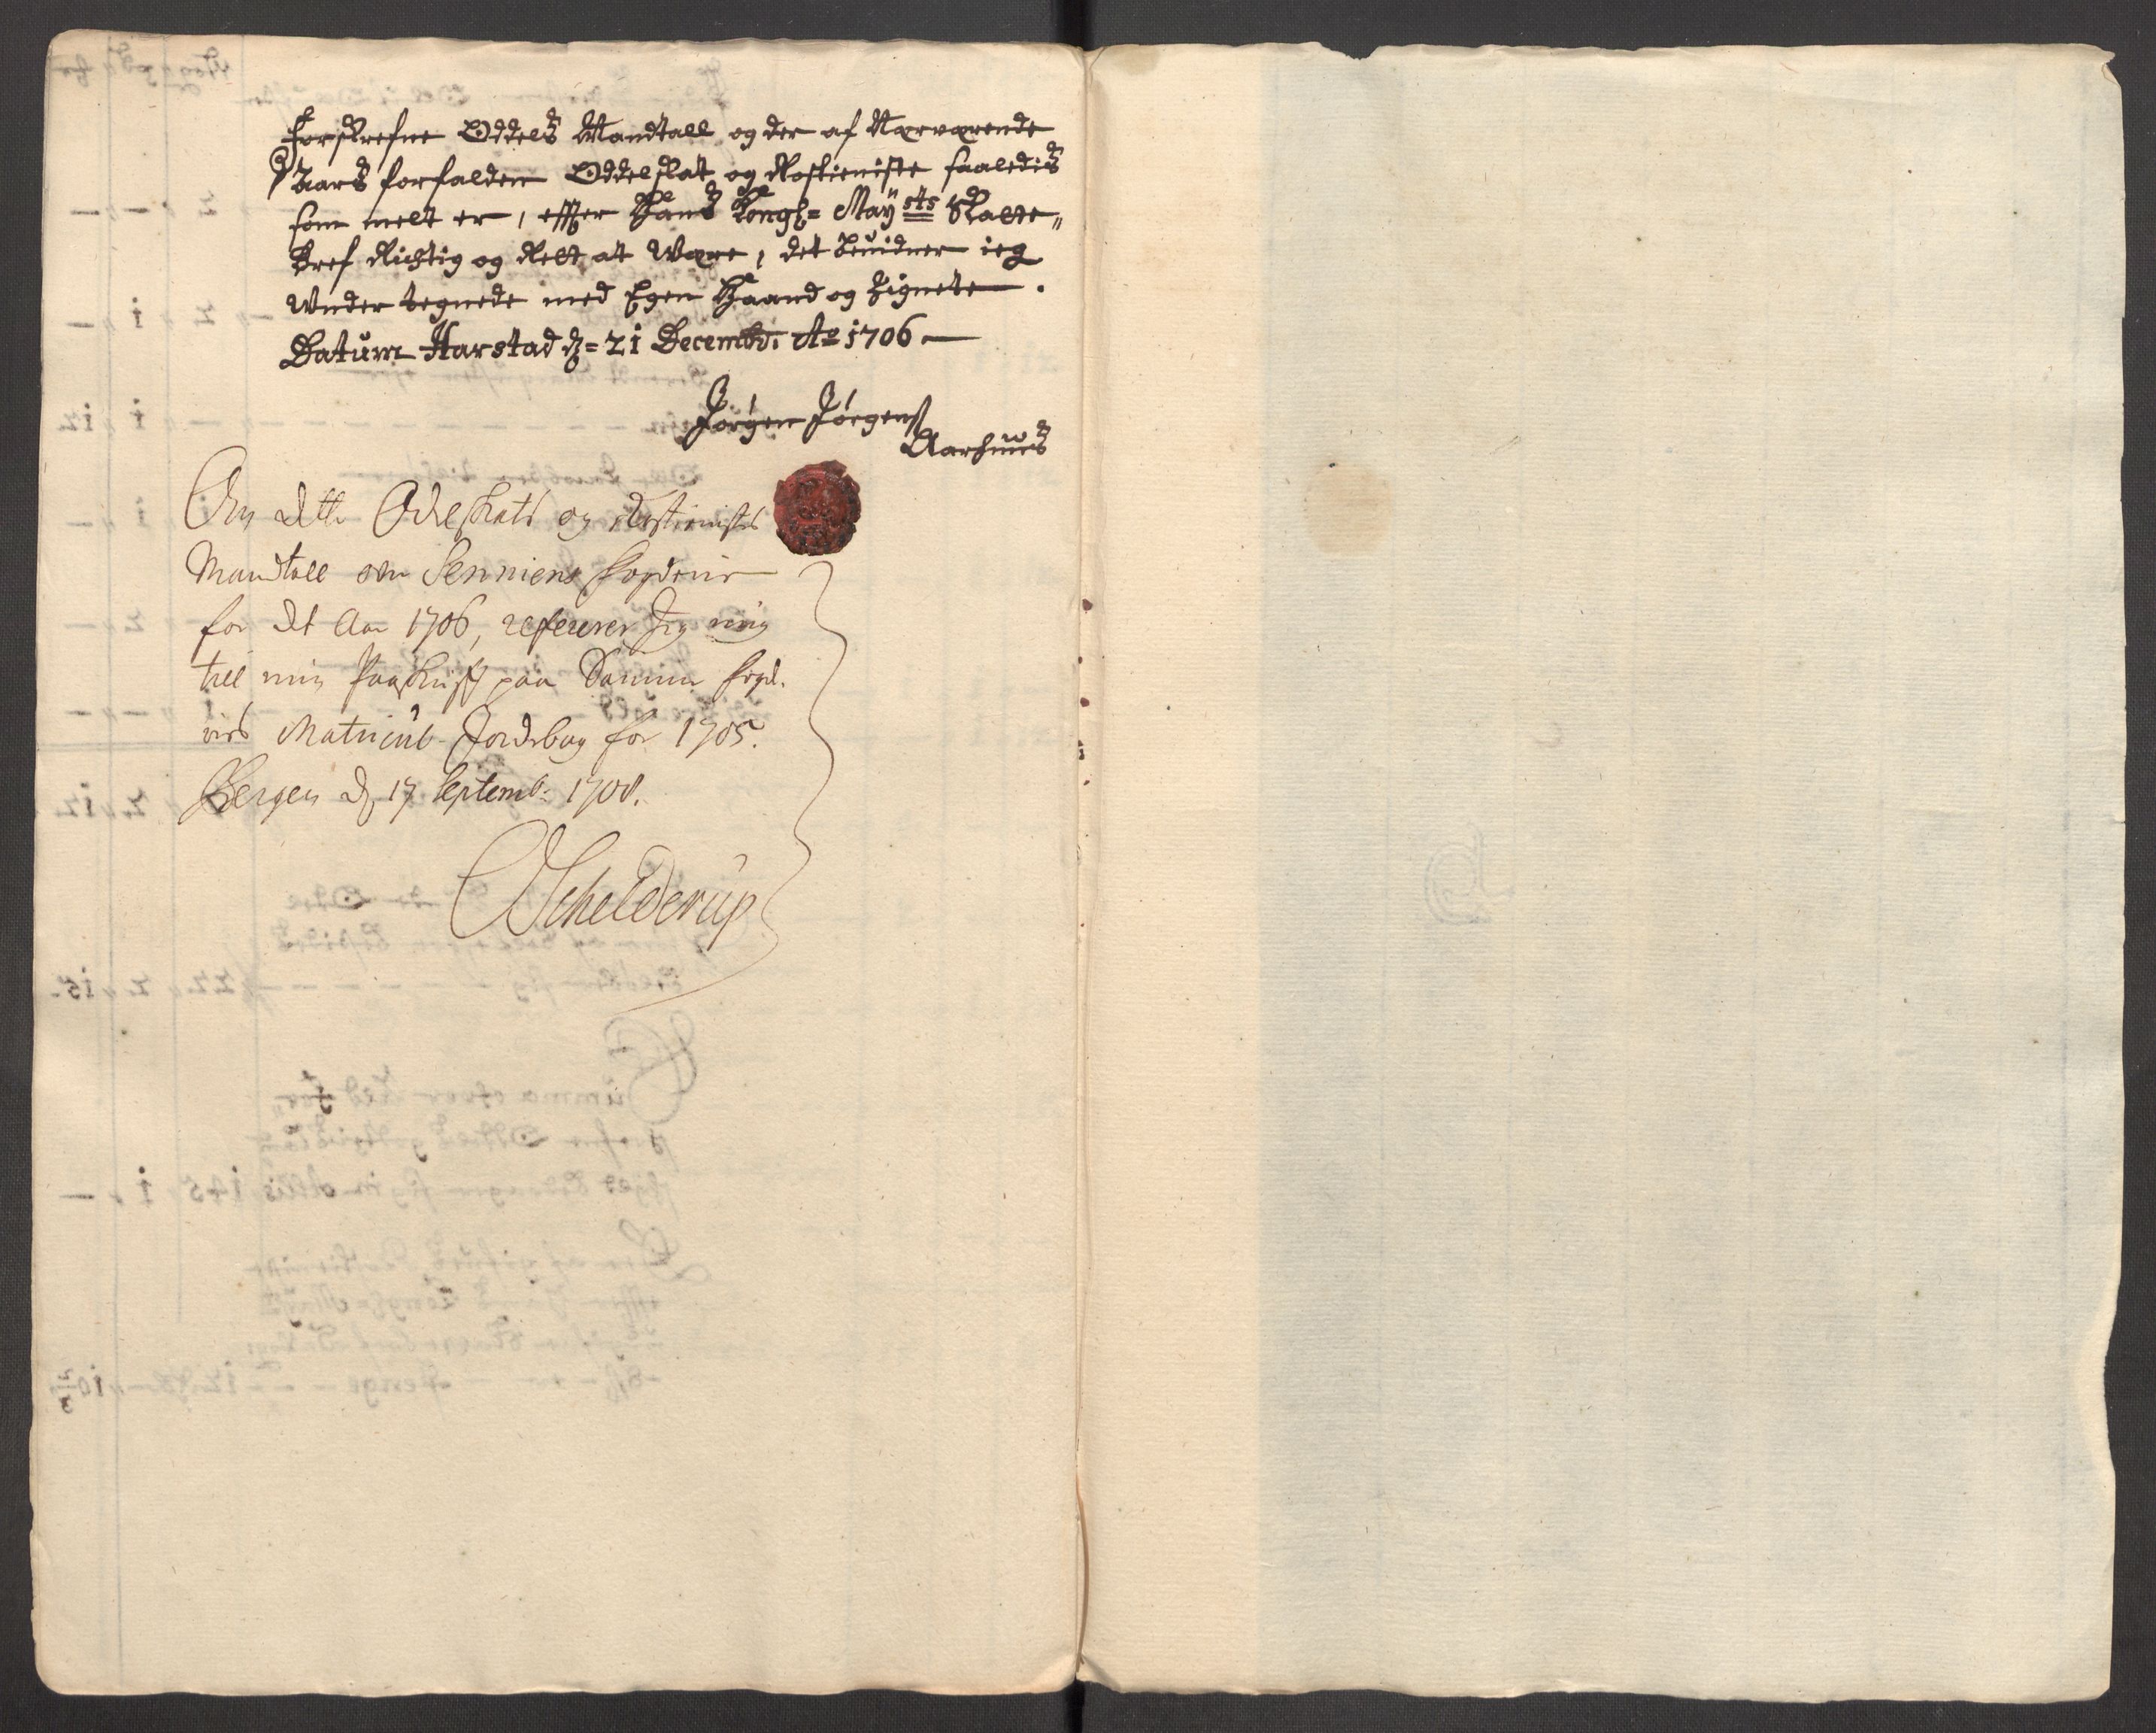 Forskrefne Oddels Mandtall og der af Nærværende
Aars forfalden Oddelskat og Rostieniste saaledis
som melt er, effter Hans Kongl= Mayᵗˢ Skatte„
Bref Richtig og Rett at Være, det Beuidner ieg
Under tegnede med Egen Haand og Zignete.
Datum Harstad d= 21 Decembr: Ao 1706
Jörgen Jörgens
Aarhuus
Om dette Odelskats og Rostienistes
Mandtall over Senniens fogderie
for det Aar 1706, refererer Jeg mig
till min Paaskrifft paa Samme fogd.
ries Matricul Jordebog for 1705.
Bergen d 17 Septemb: 1708.
Schelderup